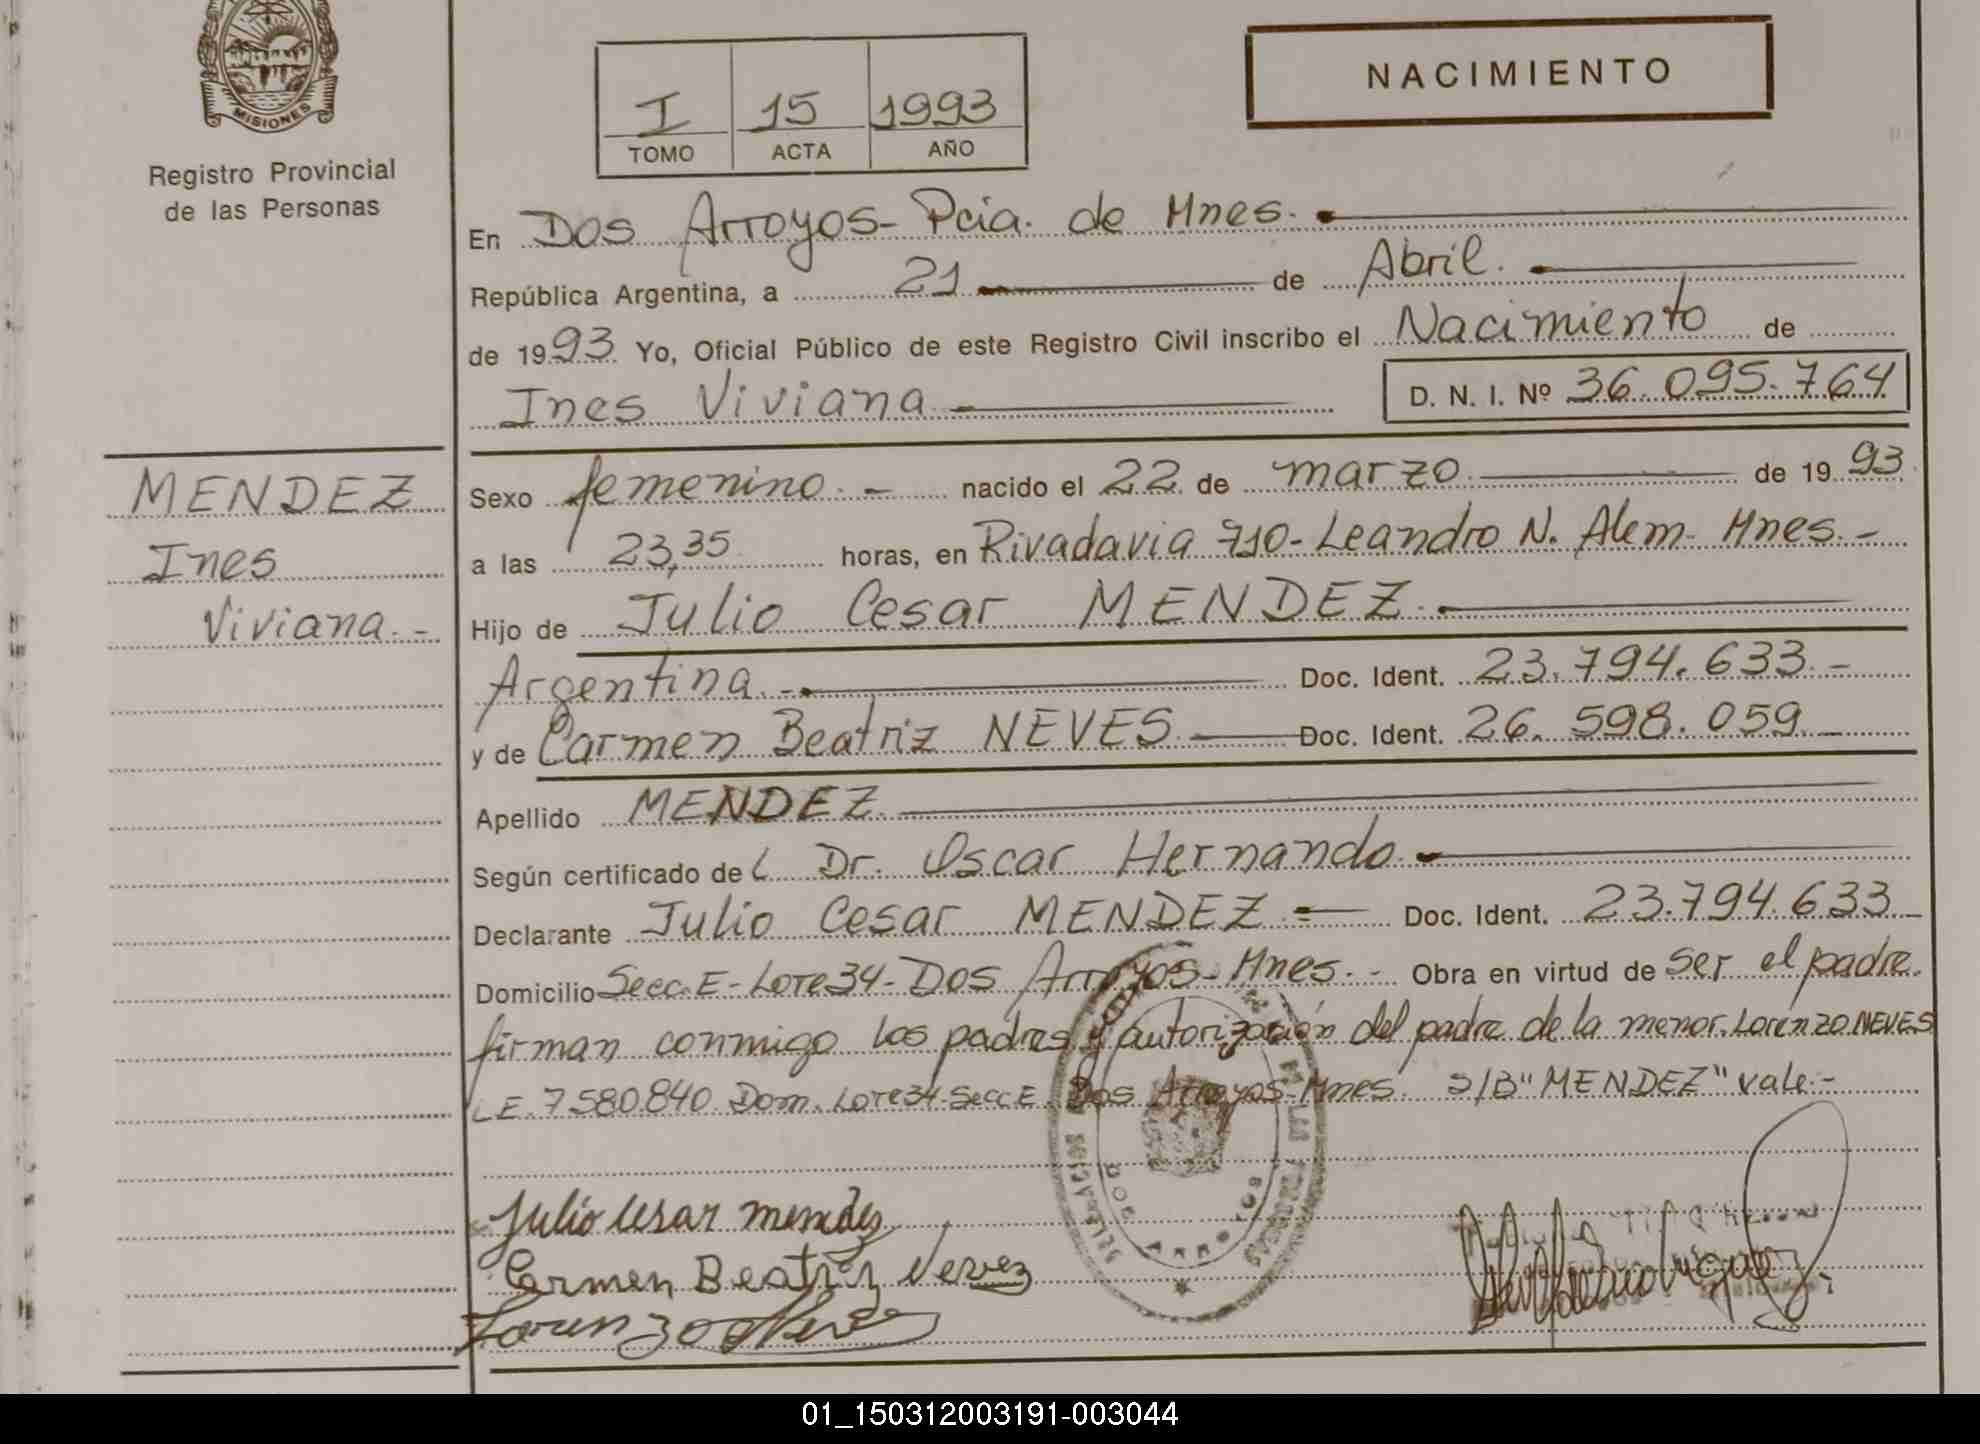 MISIONES
Registro Provincial
de las Personas
I 15 1993
TOMO ACTA AÑO
NACIMIENTO
En Dos Arroyos- Pcia. de Mnes.
República Argentina, a 21 de Abril.
de 1993 Yo, Oficial Público de este Registro Civil inscribo el Nacimiento de
Ines Viviana
D. N. I. Nº 36.095.764
MENDEZ
Ines
Viviana.-
Sexo femenino.- nacido el 22 de marzo de 1993
a las 23,35 horas, en Rivadavia 710- Leandro N. Alem- Mnes.-
Hijo de Julio Cesar MENDEZ.
Argentina.- Doc. Ident. 23.794.633.-
y de Carmen Beatriz NEVES Doc. Ident. 26.598.059.-
Apellido MENDEZ.
Según certificado del Dr. Oscar Hernando.
Declarante Julio Cesar MENDEZ Doc. Ident. 23.794.633
Domicilio Secc.E-Lote34-Dos Arroyos-Mnes.- Obra en virtud de ser el padre.
firman conmigo los padres y autorización del padre de la menor. Lorenzo NEVES
L.E. 7580840 Dom. Lote34-Secc E. Dos Arroyos-Mnes. S/B "MENDEZ" vale.-
Julio Cesar mendez
Carmen Beatriz Nevez
Lorenzo Neves
DOS ARROYOS
01_150312003191-003044